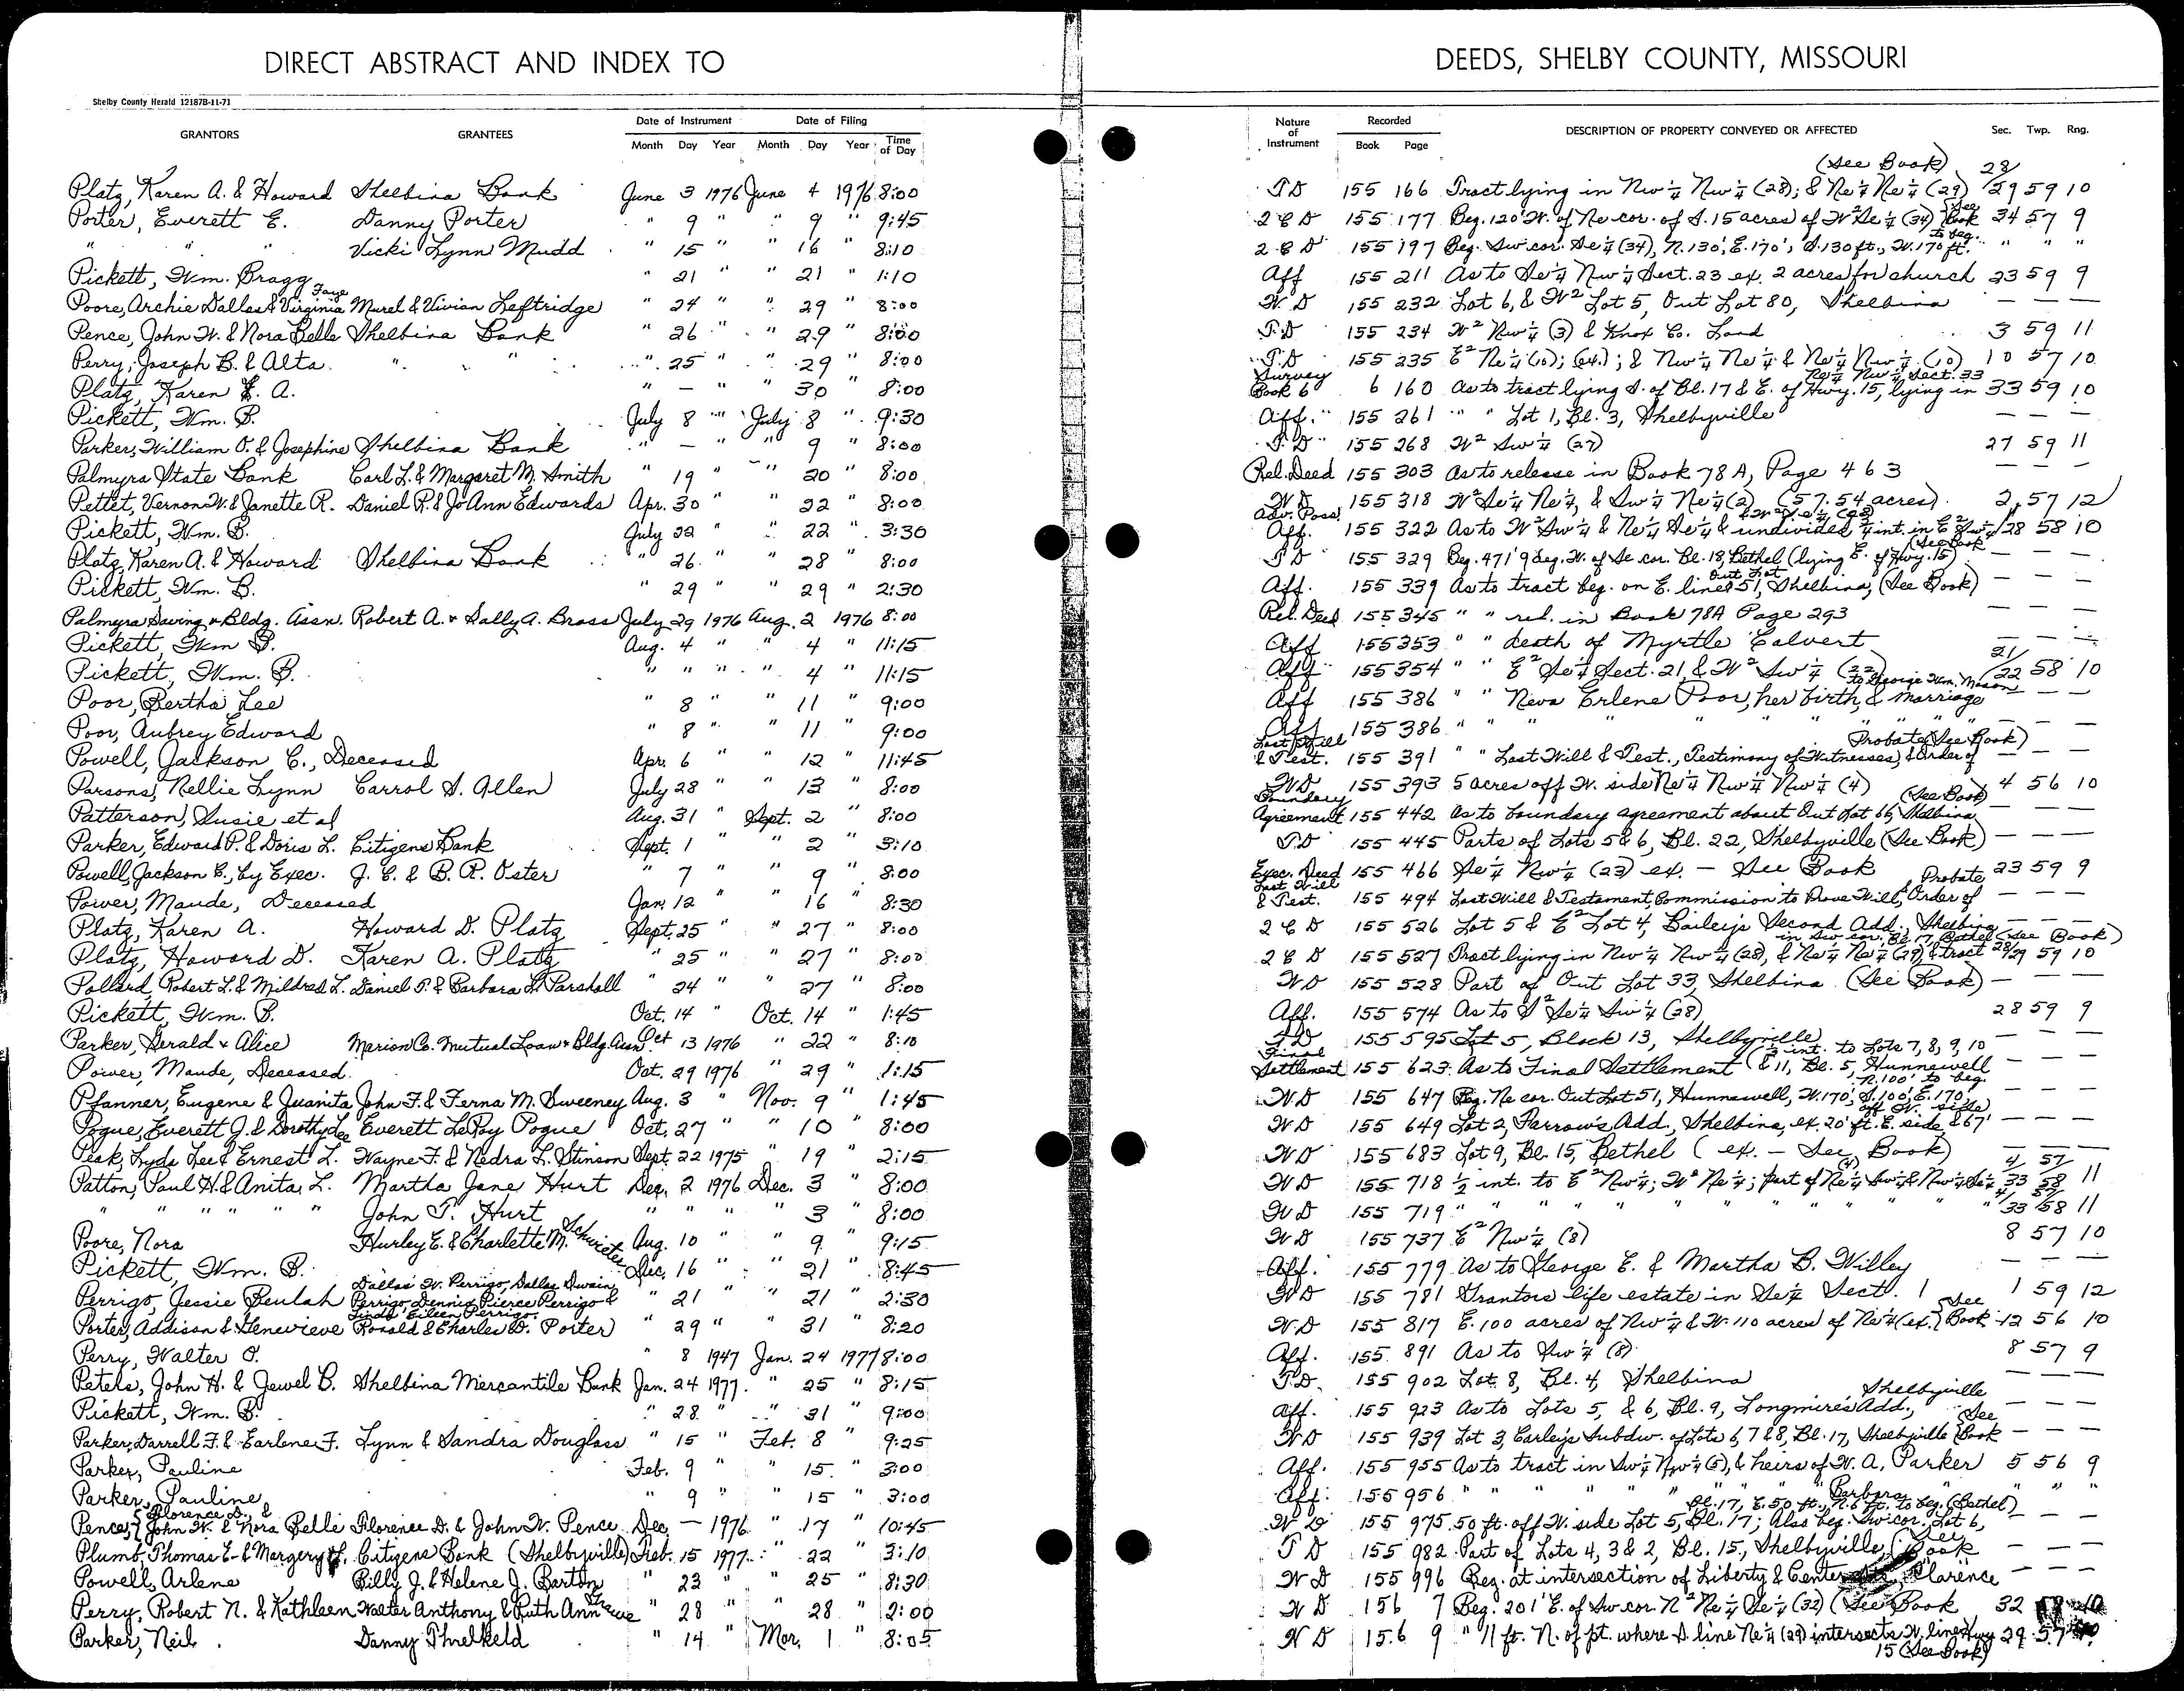 DIRECT ABSTRACT AND INDEX TO
DEEDS, SHELBY COUNTY, MISSOURI
Shelby County Herald 12187B-11-71
GRANTORS GRANTEES Date of Instrument Month Day Year Date of Filing Month Day Year Time of Day
Nature of Instrument Recorded Book Page DESCRIPTION OF PROPERTY CONVEYED OR AFFECTED Sec. Twp. Rng.
Platz, Karen A. & Howard Shelbina Bank June 3 1976 June 4 1976 8:00
Porter, Everett E. Danny Porter " 9 " " 9 " 9:45
" " " Vicki Lynn Mudd " 15 " " 16 " 8:10
Pickett, Wm. Bragg " 21 " " 21 " 1:10
Poore, Archie Dallas & Virginia Faye Murel & Vivian Leftridge " 24 " " 29 " 8:00
Pence, John W. & Nora Belle Shelbina Bank " 26 " " 29 " 8:00
Perry, Joseph B. & Alta " " " 25 " " 29 " 8:00
Platz, Karen A. " — " " 30 " 8:00
Pickett, Wm. B. July 8 " July 8 " 9:30
Parker, William O. & Josephine Shelbina Bank " — " " 9 " 8:00
Palmyra State Bank Carl L. & Margaret M. Smith " 19 " " 20 " 8:00
Pettet, Vernon W. & Janette R. Daniel R. & Jo Ann Edwards Apr. 30 " " 22 " 8:00
Pickett, Wm. B. July 22 " " 22 " 3:30
Platz, Karen A. & Howard Shelbina Bank " 26 " " 28 " 8:00
Pickett, Wm. B. " 29 " " 29 " 2:30
Palmyra Saving & Bldg. Assn. Robert A. & Sally A. Brass July 29 1976 Aug. 2 1976 8:00
Pickett, Wm B. Aug. 4 " " 4 " 11:15
Pickett, Wm. B. " " " " 4 " 11:15
Poor, Bertha Lee " 8 " " 11 " 9:00
Poor, Aubrey Edward " 8 " " 11 " 9:00
Powell, Jackson C., Deceased Apr. 6 " " 12 " 11:45
Parsons, Nellie Lynn Carrol S. Allen July 28 " " 13 " 8:00
Patterson, Susie et al Aug. 31 " Sept. 2 " 8:00
Parker, Edward P. & Doris L. Citizens Bank Sept. 1 " " 2 " 3:10
Powell, Jackson C., by Exec. J. C. & B. R. Oster " 7 " " 9 " 8:00
Power, Maude, Deceased Jan. 12 " " 16 " 8:30
Platz, Karen A. Howard D. Platz Sept. 25 " " 27 " 8:00
Platz, Howard D. Karen A. Platz " 25 " " 27 " 8:00
Pollard, Robert L. & Mildred L. Daniel P. & Barbara L. Parshall " 24 " " 27 " 8:00
Pickett, Wm. B. Oct. 14 " Oct. 14 " 1:45
Parker, Gerald & Alice Marion Co. Mutual Loan & Bldg. Assn Oct 13 1976 " 22 " 8:10
Power, Maude, Deceased Oct. 29 1976 " 29 " 1:15
Pfanner, Eugene & Juanita John F. & Ferna M. Sweeney Aug. 3 " Nov. 9 " 1:45
Pogue, Everett J. & Dorothy Lee Everett LeRoy Pogue Oct. 27 " " 10 " 8:00
Peak, Lyda Lee & Ernest L. Wayne F. & Nedra L. Stinson Sept. 22 1975 " 19 " 2:15
Patton, Paul H. & Anita L. Martha Jane Hurt Dec. 2 1976 Dec. 3 " 8:00
" " " " " " John T. Hurt " " " " 3 " 8:00
Poore, Nora Hurley E. & Charlette M. Aug. 10 " " 9 " 9:15
Pickett, Wm. B. Dec. 16 " " 21 " 8:45
Perrigo, Jessie Beulah Dallas W. Perrigo, Dallas Dwain Perrigo, Dennis Pierce Perrigo & Linda Eileen Perrigo " 21 " " 21 " 2:30
Porter, Addison & Genevieve Ronald & Charles D. Porter " 29 " " 31 " 8:20
Perry, Walter O. " 8 1947 Jan. 24 1977 8:00
Peters, John H. & Jewel B. Shelbina Mercantile Bank Jan. 24 1977 " 25 " 8:15
Pickett, Wm. B. " 28 " " 31 " 9:00
Parker, Darrell F. & Earlene F. Lynn & Sandra Douglass " 15 " Feb. 8 " 9:25
Parker, Pauline Feb. 9 " " 15 " 3:00
Parker, Pauline " 9 " " 15 " 3:00
Pence, { Florence D. & John W. & Nora Belle Florence D. & John W. Pence Dec. — 1976 " 17 " 10:45
Plumb, Thomas E. & Margery Citizens Bank (Shelbyville) Feb. 15 1977 " 22 " 3:10
Powell, Arlene Billy J. & Helene J. Barton " 23 " " 25 " 8:30
Perry, Robert N. & Kathleen Walter Anthony & Ruth Ann " 28 " " 28 " 2:00
Parker, Neil Danny Threlkeld " 14 " Mar. 1 " 8:05
T D 155 166 Tract lying in Nw¼ Nw¼ (28); & Ne¼ Ne¼ (29) (See Book) 28/29 59 10
2 C D 155 177 Beg. 120' W. of Ne cor. of S. 15 acres of W² Se¼ (34) See Book 34 57 9
2 C D 155 197 Beg. Sw cor. Se¼ (34), N. 130', E. 170', S. 130 ft., W. 170 ft. to beg. " " "
Aff 155 211 As to Se¼ Nw¼ Sect. 23 ex. 2 acres for church 23 59 9
W D 155 232 Lot 6, & W² Lot 5, Out Lot 80, Shelbina — — —
T D 155 234 W² Nw¼ (3) & Knox Co. Land 3 59 11
T D 155 235 E² Ne¼ (10); (ex.); & Nw¼ Ne¼ & Ne¼ Nw¼ (10) 10 57 10
Survey Book 6 6 160 As to tract lying S. of Bl. 17 & E. of Hwy. 15, lying in Ne¼ Nw¼ Sect. 33 33 59 10
Aff. 155 261 " " Lot 1, Bl. 3, Shelbyville — — —
T. D 155 268 W² Sw¼ (27) 27 59 11
Rel. Deed 155 303 As to release in Book 78A, Page 463 — — —
W D 155 318 W² Se¼ Ne¼, & Sw¼ Ne¼ (2) (57.54 acres) 2 57 12
Adv. Poss. Aff. 155 322 As to W² Sw¼ & Ne¼ Se¼ & undivided int. in E² 28 58 10
T D 155 329 Beg. 471' 9 deg. W. of Se cor. Bl. 18, Bethel (lying E. of Hwy. 15) (See Book — — —
Aff. 155 339 As to tract beg. on E. line Out Lot 51, Shelbina, (See Book) — — —
Rel. Deed 155 345 " " rel. in Book 78A Page 293 — — —
Aff 155 353 " " death of Myrtle Calvert — — —
Aff 155 354 " " E² Se¼ Sect. 21, & W² Sw¼ (22) 21/22 58 10
Aff 155 386 " " Neva Erlene Poor, her birth, & marriage to George Wm. Mason — —
Aff 155 386 " " " " " " " " " — —
Last Will & Test. 155 391 " " Last Will & Test., Testimony of Witnesses, & Order of Probate (See Book) — —
W D 155 393 5 acres off W. side Ne¼ Nw¼ Nw¼ (4) 4 56 10
Boundary Agreement 155 442 As to boundary agreement about Out Lot 66, Shelbina (See Book) — — —
T D 155 445 Parts of Lots 5 & 6, Bl. 22, Shelbyville (See Book) — — —
Exec. Deed 155 466 Se¼ Nw¼ (23) ex. — See Book 23 59 9
Last Will & Test. 155 494 Last Will & Testament, Commission to Prove Will, Order of Probate — — —
2 C D 155 526 Lot 5 & E² Lot 4, Bailey's Second Add., Shelbina — — —
2 C D 155 527 Tract lying in Nw¼ Nw¼ (28), & Ne¼ Ne¼ (29) & tract in Sw cor. Bl. 17, Bethel (See Book) 28/29 59 10
W D 155 528 Part of Out Lot 33, Shelbina (See Book) — — —
Aff. 155 574 As to S² Se¼ Sw¼ (28) 28 59 9
T D 155 595 Lot 5, Block 13, Shelbyville — — —
Final Settlement 155 623 As to Final Settlement ( int. to Lots 7, 8, 9, 10 & 11, Bl. 5, Hunnewell — — —
W D 155 647 Beg. Ne cor. Out Lot 51, Hunnewell, W. 170', S. 100', E. 170', N. 100' to beg. — — —
W D 155 649 Lot 2, Farrow's Add., Shelbina, ex. 20 ft. E. side & 67' off W. side — — —
W D 155 683 Lot 9, Bl. 15, Bethel (ex. — See Book) — — —
W D 155 718 ½ int. to E² Nw¼; W² Ne¼; part of Ne¼ Sw¼ & Nw¼ Se¼ (4) 4/33 57/58 11
W D 155 719 " " " " " " " " " 4/33 57/58 11
W D 155 737 E² Nw¼ (8) 8 57 10
Aff. 155 779 As to George E. & Martha B. Willey — — —
W D 155 781 Grantors life estate in Se¼ Sect. 1 1 59 12
W D 155 817 E. 100 acres of Nw¼ & W. 110 acres of Ne¼ (ex.) See Book 12 56 10
Aff. 155 891 As to Sw¼ (8) 8 57 9
T D. 155 902 Lot 8, Bl. 4, Shelbina — — —
Aff. 155 923 As to Lots 5, & 6, Bl. 9, Longmires Add., Shelbyville — — —
W D 155 939 Lot 3, Carley's Subdiv. of Lots 6, 7 & 8, Bl. 17, Shelbyville See Book — — —
Aff. 155 955 As to tract in Sw¼ Nw¼ (5), & heirs of W. A. Parker 5 56 9
Aff. 155 956 " " " " " " " " Barbara " " " "
W D 155 975 50 ft. off W. side Lot 5, Bl. 17; Also beg. Sw cor. Lot 6, Bl. 17, E. 50 ft., N. 6 ft. to beg. (Bethel) — — —
T D 155 982 Part of Lots 4, 3 & 2, Bl. 15, Shelbyville, (See Book — — —
W D 155 996 Beg. at intersection of Liberty & Center Clarence — — —
W D 156 7 Beg. 201' E. of Sw cor. N² Ne¼ Se¼ (32) (See Book 32
W D 156 9 " 11 ft. N. of pt. where S. line Ne¼ (29) intersects W. line Hwy 15 (See Book) 29 57